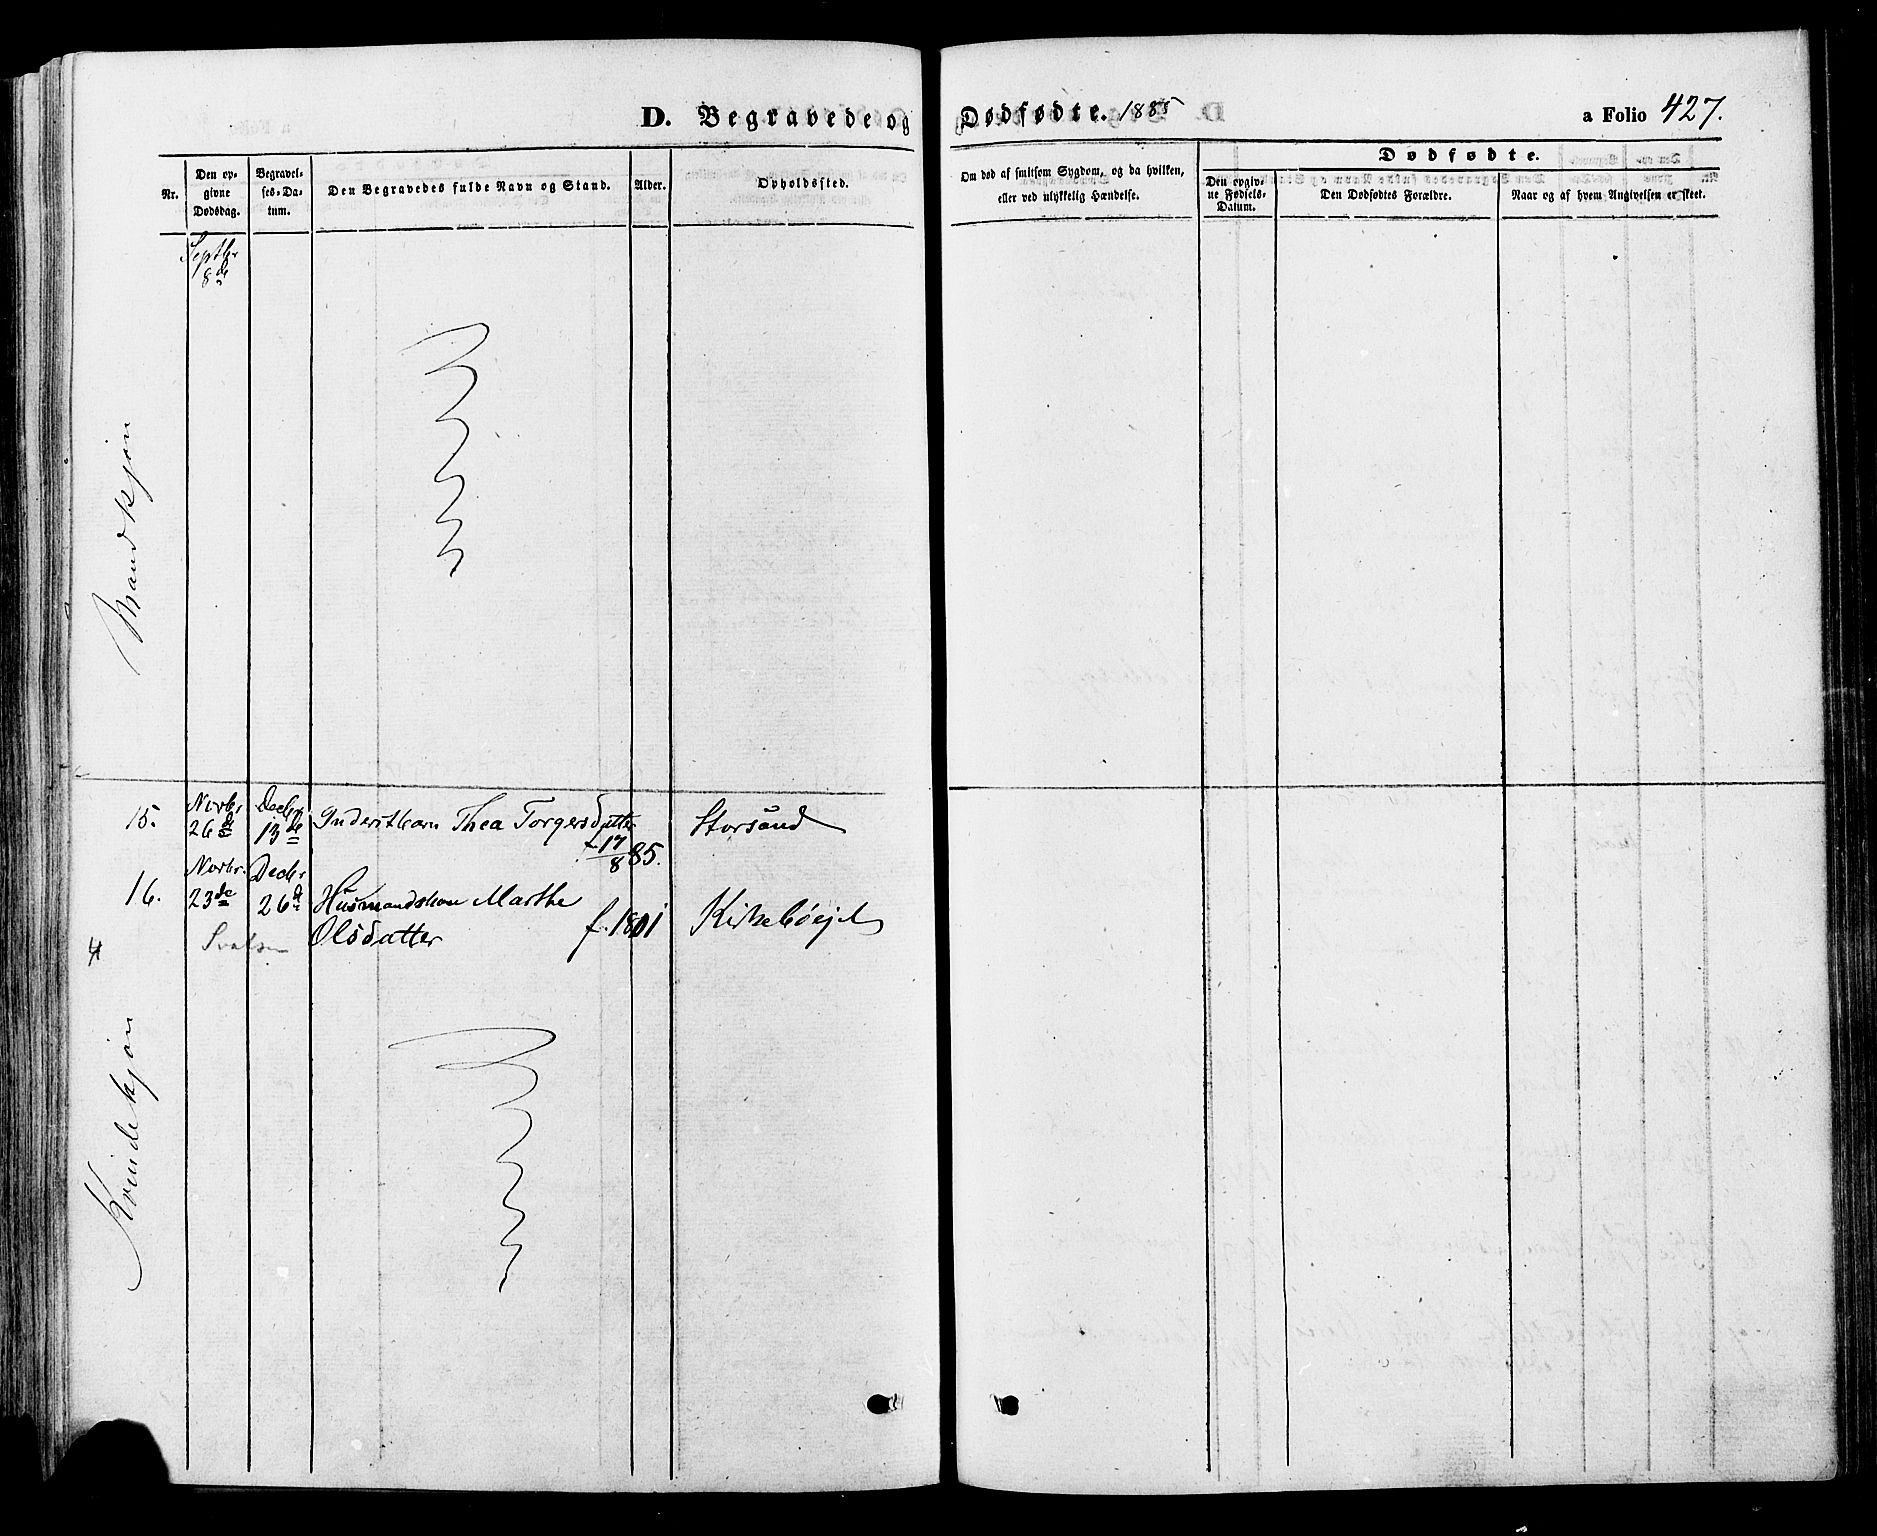 D. Begravede og Dødfødte. 1885
a Folio 427.
Nr.
Den op-
givne
Dødsdag.
Begravel-
ses-Da-
tum.
Den Begravedes fulde Navn og Stand.
Alder.
Opholdssted.
Om død af smitsom Sygdom, og da hvilken,
eller ved ulykkelig Hændelse.
Dødfødte.
Den opgiv-
ne Fødsels-
Datum.
Den Dødfødtes Forældre.
Naar og af hvem Angivelsen er skeet.
Septbr
8de
Mandkjøn
15.
Novbr
26de
Decbr
13de
Inderstbarn Thea Torgersdatter
f 17/8 85.
Storsund
16.
Novbr.
23de
Decbr
26de
Husmandskone Marthe
Olsdatter
f. 1801
Kirkebøejet
Kvindekjøn